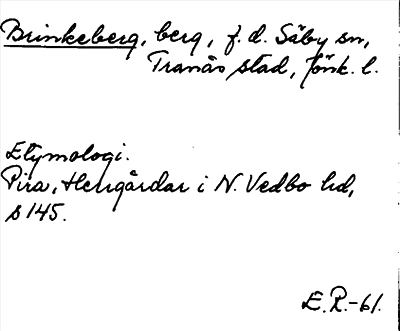 Brinkeberg, berg, f. d. Säby sn,
Tranås stad, Jönk. l.
Etymologi.
Pira, Herrgårdar i N. Vedbo hd,
s 145.
E. R. -61.